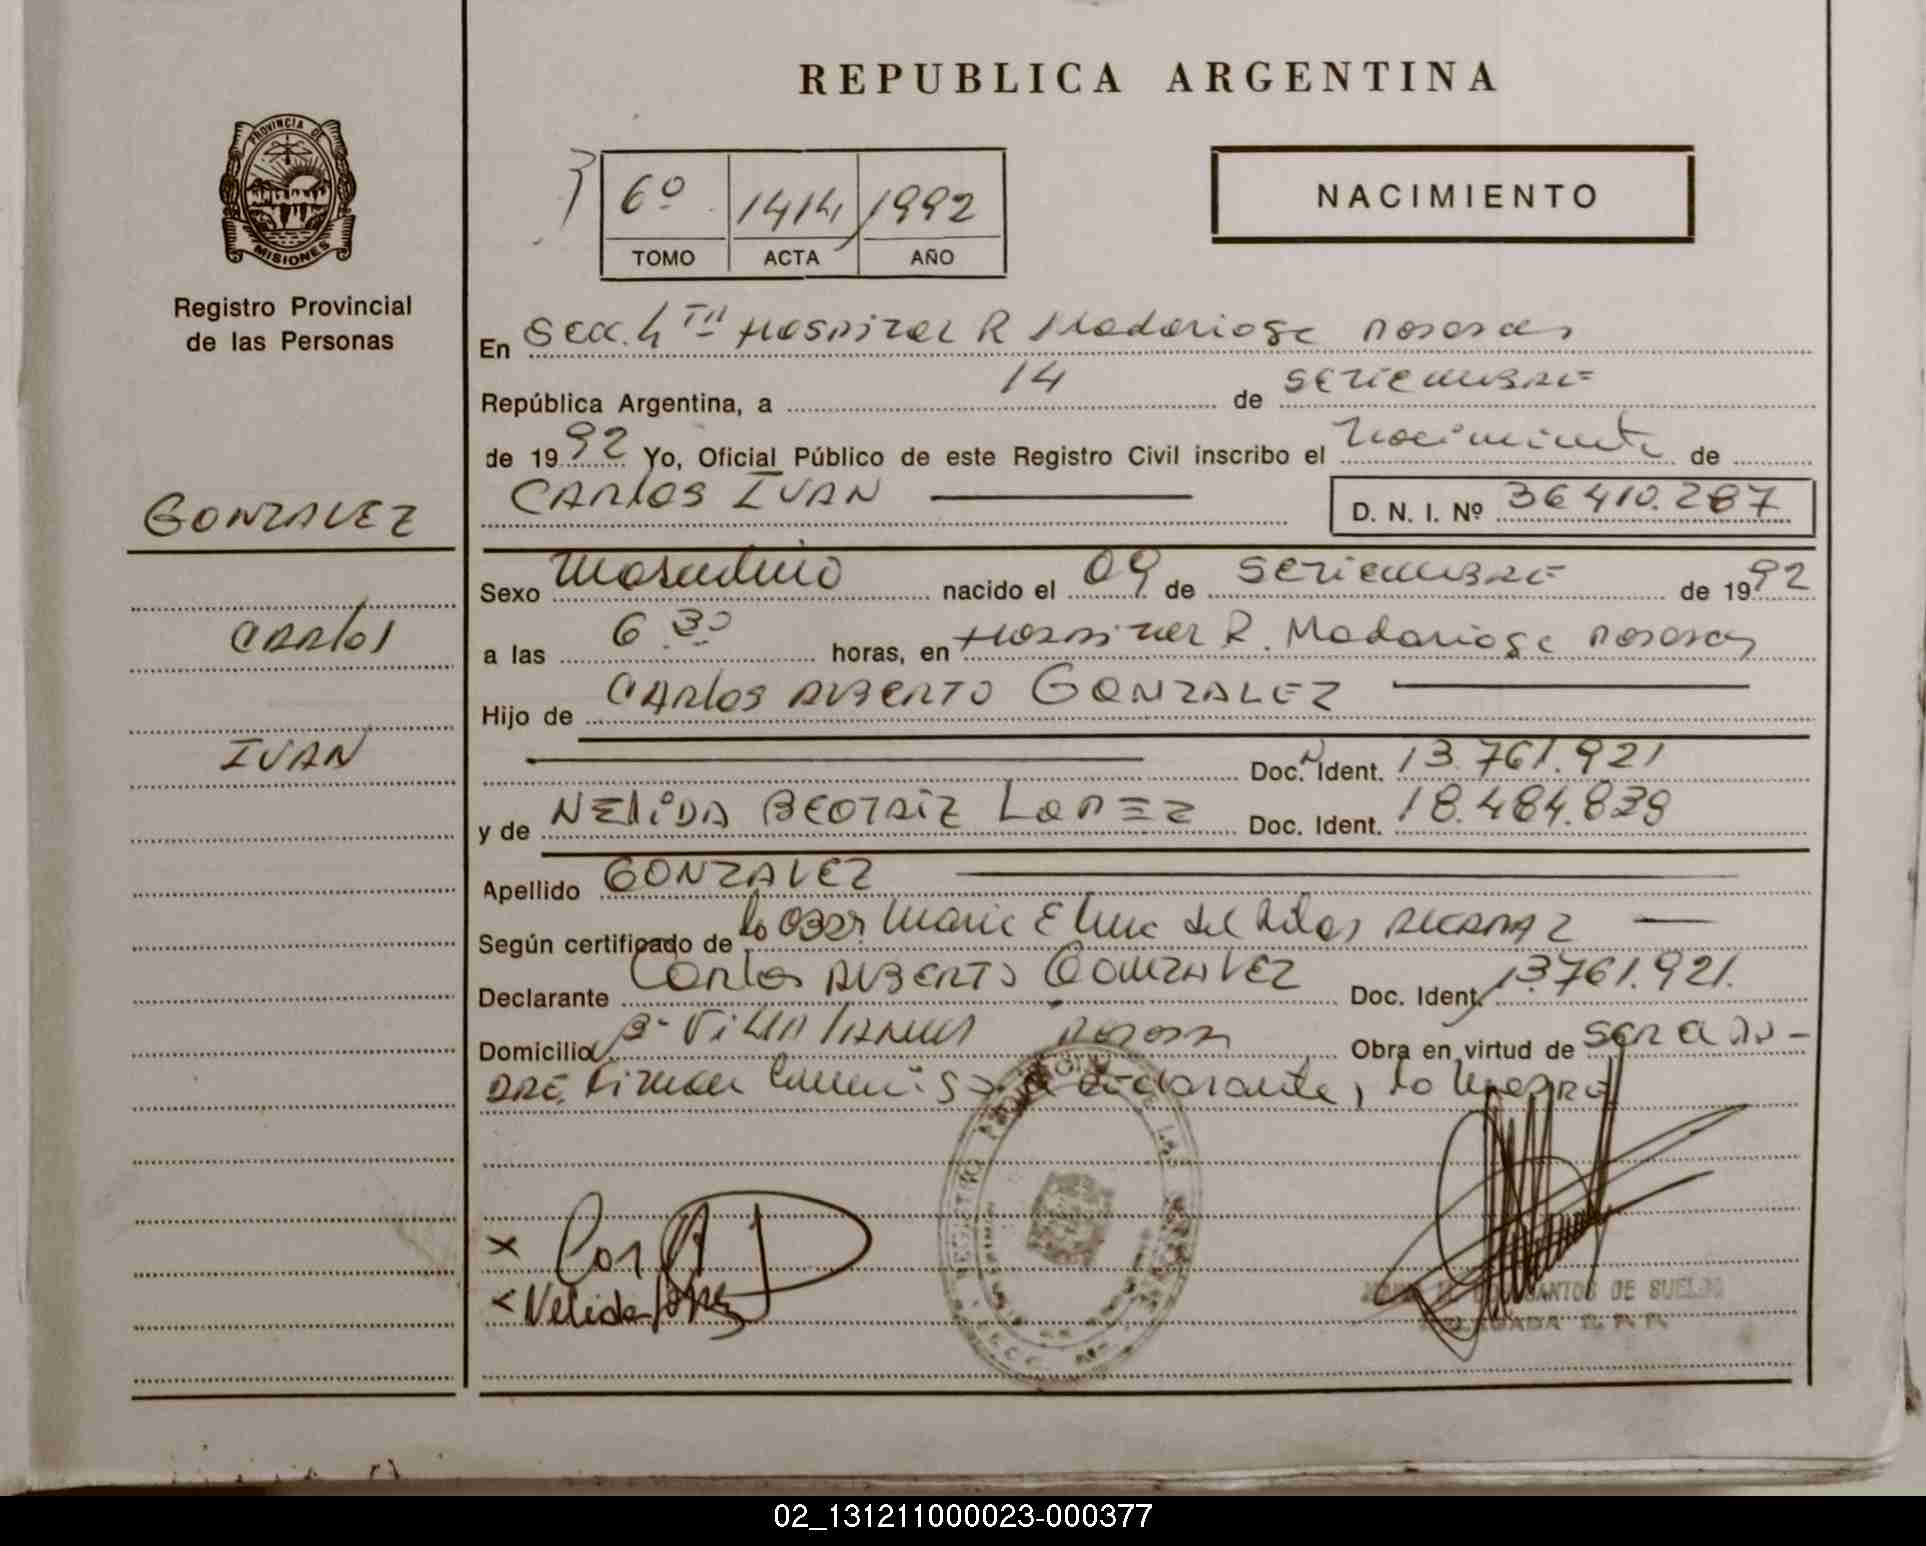 REPUBLICA ARGENTINA
PROVINCIA DE
MISIONES
Registro Provincial
de las Personas
6º 1414 1992
TOMO ACTA AÑO
NACIMIENTO
En Secc. 4ta Hospital R Madariaga Posadas
República Argentina, a 14 de SETIEMBRE
de 1992 Yo, Oficial Público de este Registro Civil inscribo el Nacimiento de
CARLOS IVAN
D. N. I. Nº 36 410.287
GONZALEZ
CARLOS
IVAN
Sexo Masculino nacido el 09 de SETIEMBRE de 1992
a las 6 30 horas, en Hospital R. Madariaga Posadas
Hijo de CARLOS ALBERTO GONZALEZ
Doc. Ident. 13.761.921
y de NELIDA BEATRIZ LOPEZ Doc. Ident. 18.484.839
Apellido GONZALEZ
Según certificado de la Obst. Maria del
Declarante Carlos ALBERTO GONZALEZ Doc. Ident. 13.761.921.
Domicilio Bº VILLA Posadas Obra en virtud de SER EL PA-
DRE. Firman Conmigo el declarante, la Madre
Nelida Lopez
SANTOS DE SUELDO
02_131211000023-000377